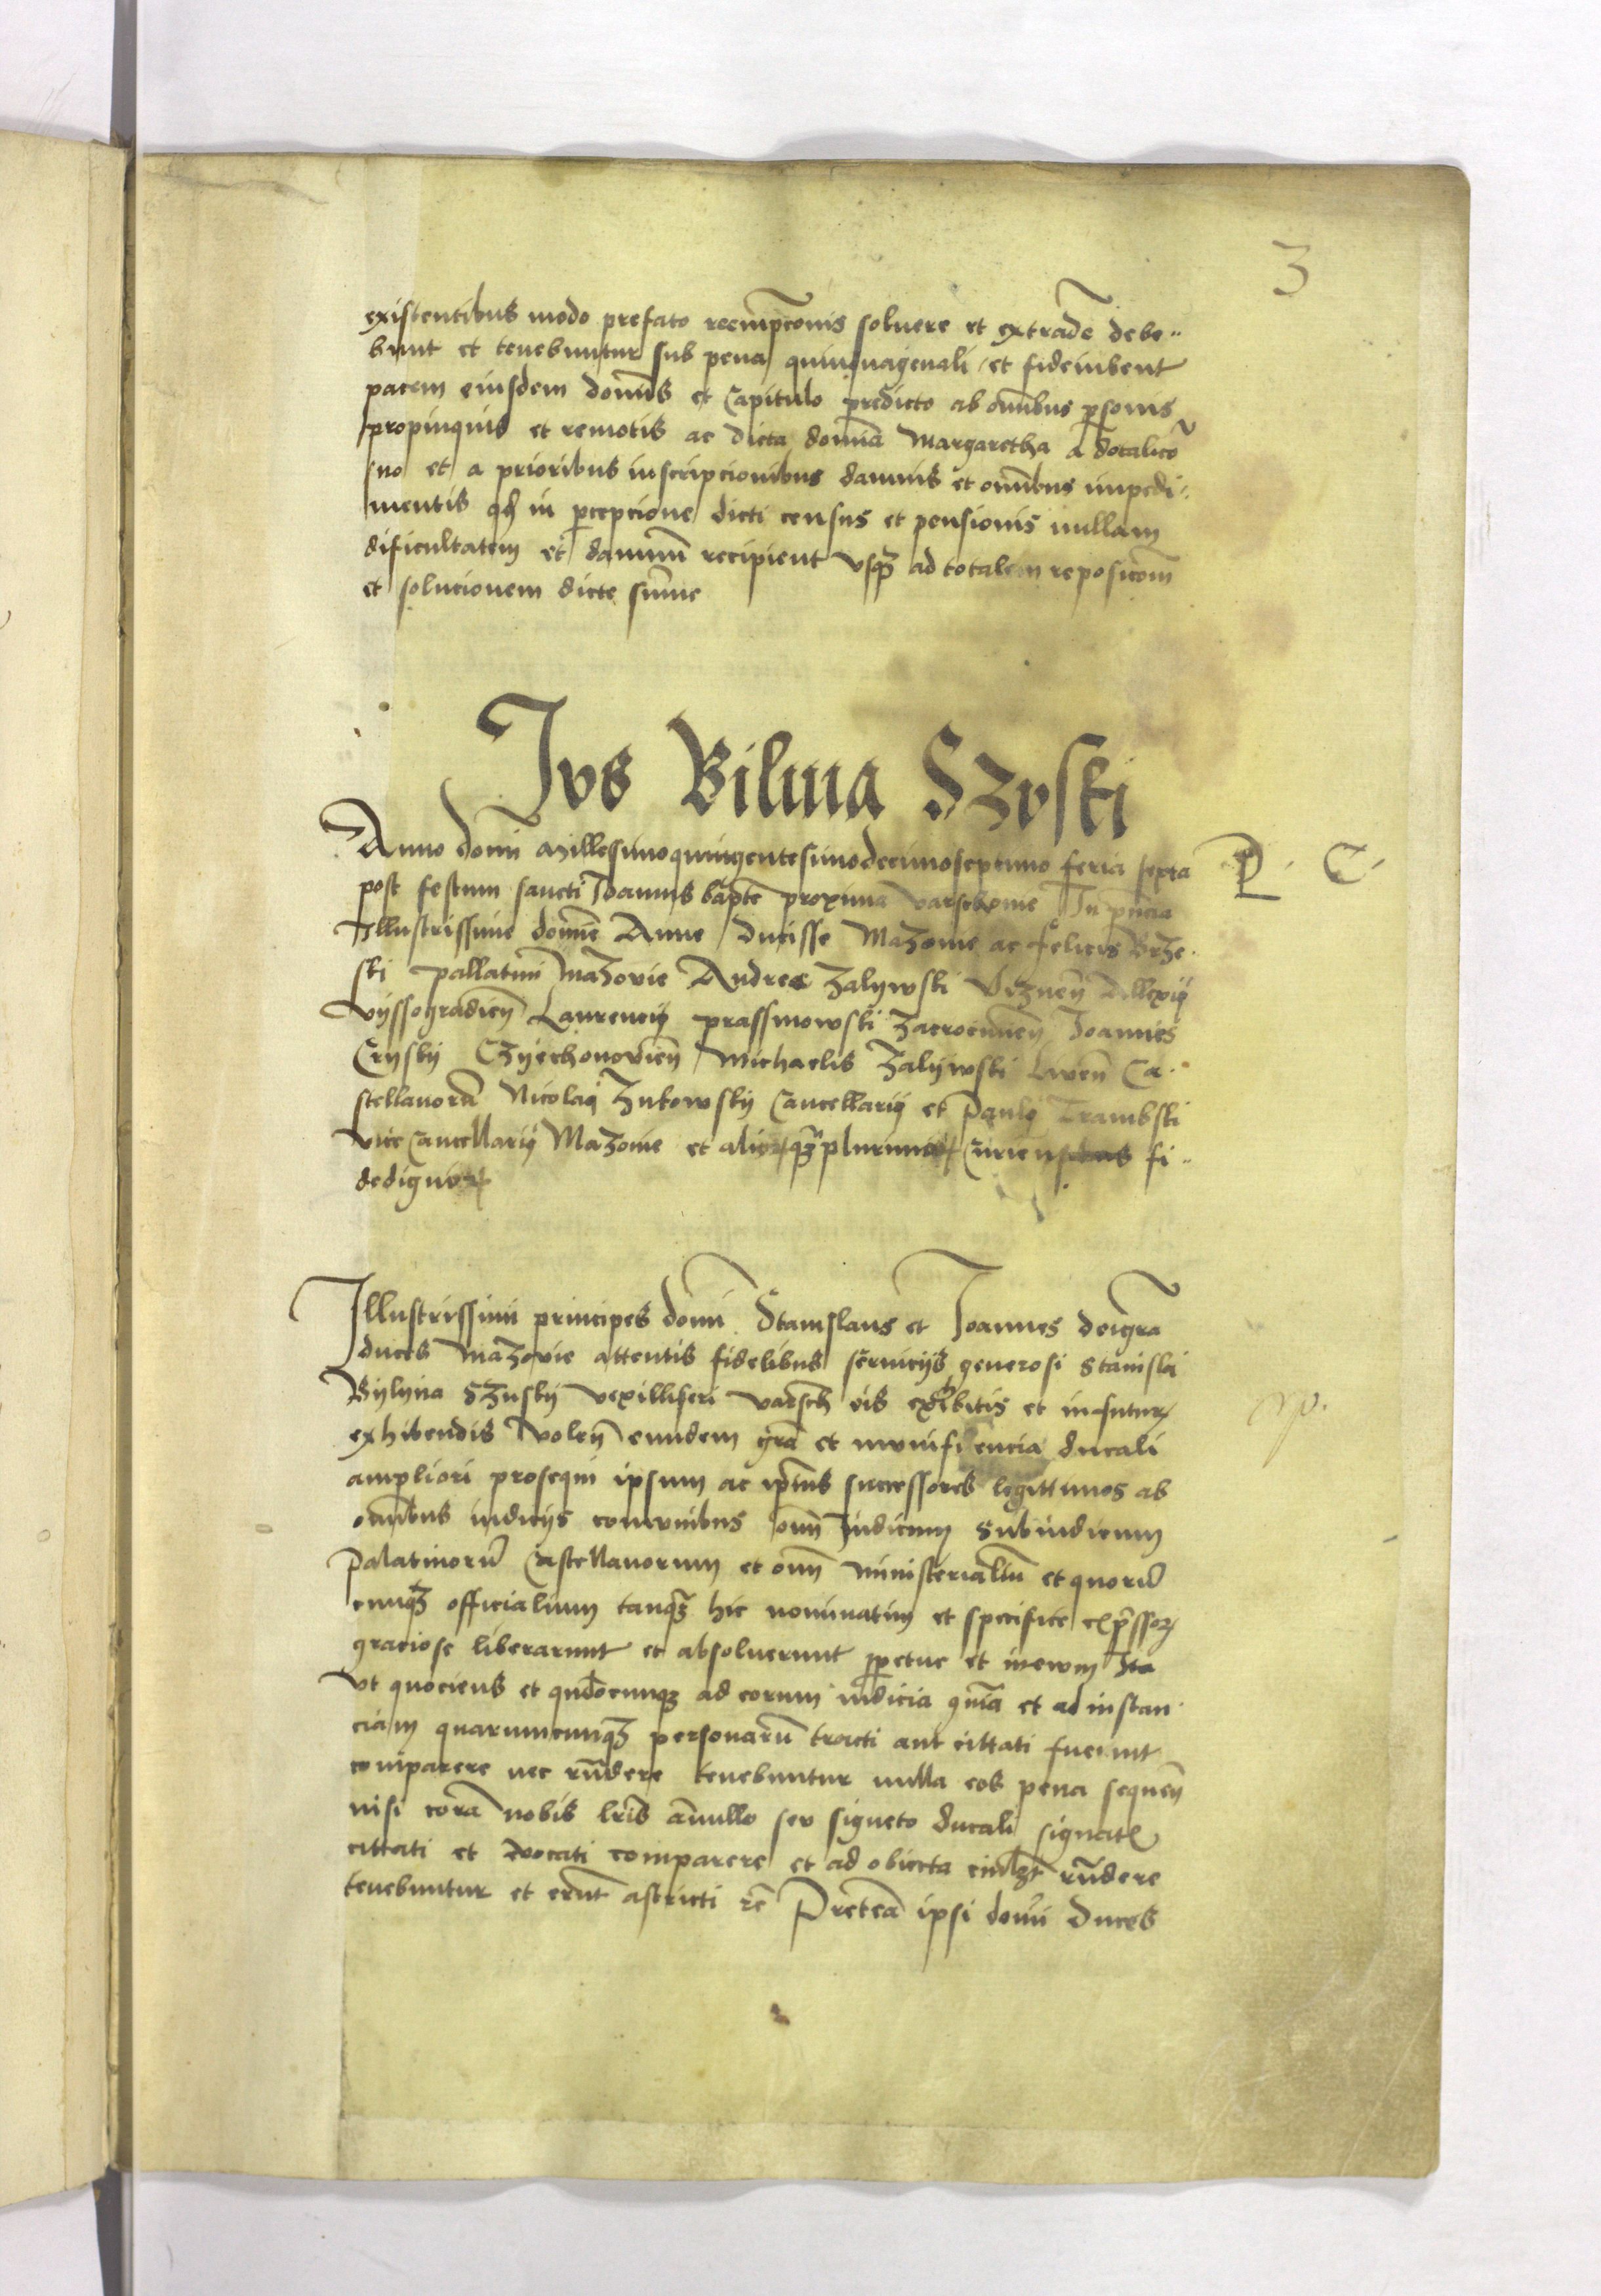 3
existentibus modo prefato reempcõnis soluere et extradẽ debe
bunt et tenebuntur sub pena quinquagenali et fideiubent
pacem eiusdem domus et Capitulo predicto ab omĩbus personis
propinquis et remotis ac dicta domĩa Margaretha a dotalicõ
suo et a prioribus inscripcionibus damnis et omĩbus impedi
mentis qd in percepcione dicti census et pensionis nullam
dificultatem et damnũ recipient vsqz ad totalem reposicõm
et solucionem dicte sũme
Jus Bilina Szuski
Anno domĩ Millesimoquingentesimodecimoseptimo feria sexta
P. C.
post festum sancti Joannis bapte proxima Varschouie In pñcia
Illustrissime domĩe Anne Ducisse Mazouie ac Felicis Brze
ski pallatini Mazovie Andree Zalywski Viznen̄ Allexij
Vyssogradien̄ Laurencij prassmowski Zacrocimen̄ Joannis
Crysky Czyechonovien̄ Michaelis Zalijwski Liven̄ Ca
stellanorũ Nicolai Zukowsky Cancellarij et Pauli Trambski
vice Cancellarij Mazouie et aliorum qz plurimorum Curien fi
dedignorum
Illustrissimi principes domĩ Stanislaus et Joannes deigrã
duces Mazovie attentis fidelibus seruicijs generosi Stanislai
Bylyna Szusky vexilliferi Varsch eis exhibitis et in futur
exhibendis volen̄ eundem grã et munificencia ducali
ampliori prosequi ipsum ac ipsius successores legittimos ab
omĩbus iudicijs comunibus omĩ Judicum Subiudicum
Palatinorũ Castellanorum et omĩ ministerialiũ et quorũ
cumqz officialium tanqz hic nominatim et specifice expressor
graciose liberarunt et absoluerunt perpetue et in ewm Ita
vt quociens et quãdocunqz ad eorum iudicia et ad instan
ciam quarumcunqz personarũ tracti aut cittati fuerint
comparere nec rñdere tenebuntur nulla eos pena sequen̄
nisi corã nobis lrĩs anullo seu signeto ducali signat
cittati et euocati comparere et ad obiecta rñdere
tenebuntur et erũt astricti Pretereã ipsi domĩ duces